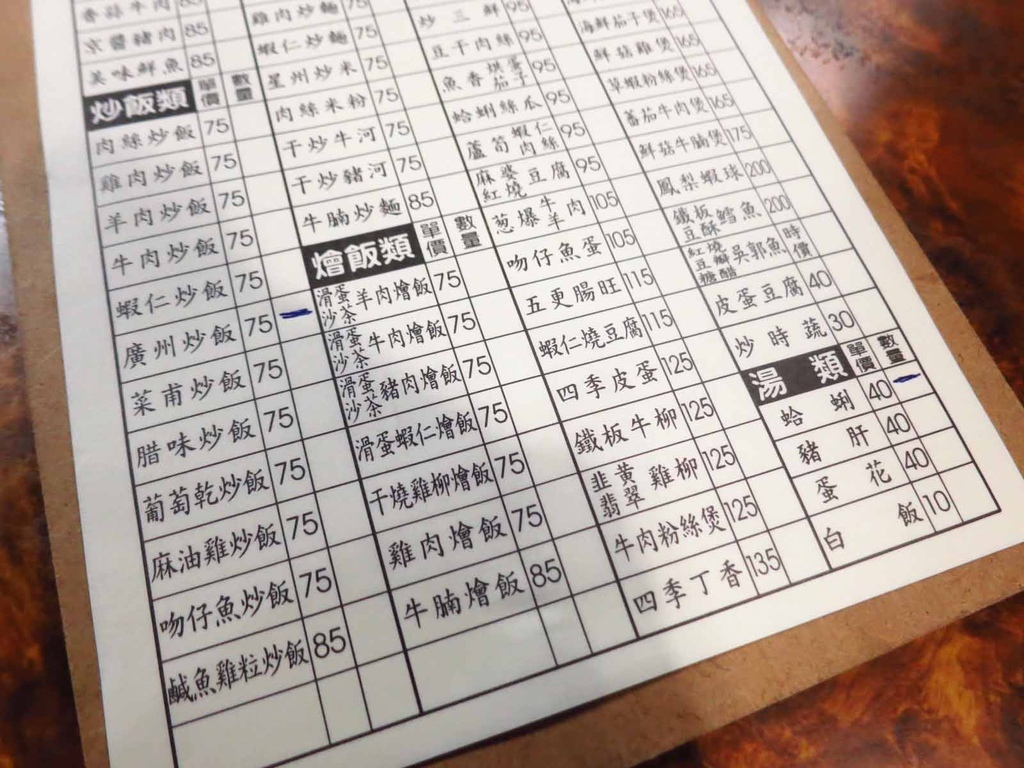 香蒜牛肉 85
京醬豬肉 85
美味鮮魚 85
炒飯類 單價 數量
肉絲炒飯 75
雞肉炒飯 75
羊肉炒飯 75
牛肉炒飯 75
蝦仁炒飯 75
廣州炒飯 75
菜甫炒飯 75
腊味炒飯 75
葡萄乾炒飯 75
麻油雞炒飯 75
吻仔魚炒飯 75
鹹魚雞粒炒飯 85
雞肉炒麵 75
蝦仁炒麵 75
星州炒米 75
肉絲米粉 75
干炒牛河 75
干炒豬河 75
牛腩炒麵 85
燴飯類 單價 數量
滑蛋沙茶羊肉燴飯 75
滑蛋沙茶牛肉燴飯 75
滑蛋沙茶豬肉燴飯 75
滑蛋蝦仁燴飯 75
干燒雞柳燴飯 75
雞肉燴飯 75
牛腩燴飯 85
炒三鮮 95
豆干肉絲 95
魚香烘蛋茄子 95
蛤蜊絲瓜 95
蘆筍蝦仁肉絲 95
麻婆紅燒豆腐 95
蔥爆牛羊肉 105
吻仔魚蛋 105
五更腸旺 115
蝦仁燒豆腐 115
四季皮蛋 125
鐵板牛柳 125
韭黃翡翠雞柳 125
牛肉粉絲煲 125
四季丁香 135
海鮮茄子煲 165
鮮菇雞煲 165
草蝦粉絲煲 165
蕃茄牛肉煲 165
鮮菇牛腩煲 175
鳳梨蝦球 200
鐵板豆酥鱈魚 200
紅燒豆瓣糖醋吳郭魚 時價
皮蛋豆腐 40
炒時蔬 30
湯類 單價 數量
蛤蜊 40
豬肝 40
蛋花 40
白飯 10